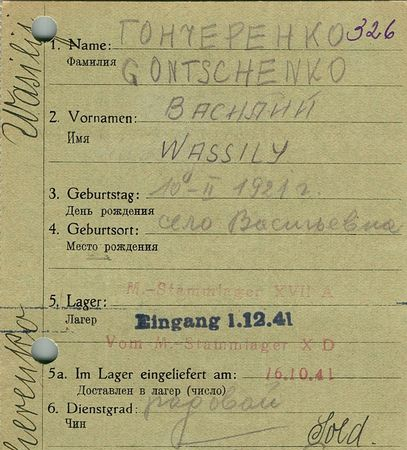 Wassily
1. Name: ГОНЧЕРЕНКО 326
Фамилия GONTSCHENKO
2. Vornamen: ВАСИЛИЙ
Имя
WASSILY
3. Geburtstag: 10-II 1921 г.
День рождения
4. Geburtsort: село Васильевна
Место рождения
M.-Stammlager XVII A
5. Lager:
Лагер Eingang 1.12.41
Vom M.-Stammlager X D
5a. Im Lager eingeliefert am: 16.10.41
Доставлен в лагер (число)
6. Dienstgrad: рядовой
Чин
Sold.